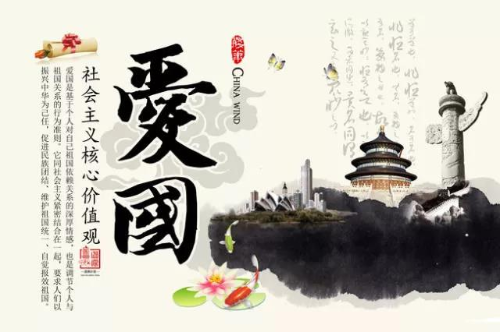 CHINA WIND
愛國
社会主义核心价值观
爱国是基于个人对自己祖国依赖关系的深厚情感，也是调节个人与
祖国关系的行为准则。它同社会主义紧密结合在一起，要求人们以
振兴中华为己任，促进民族团结、维护祖国统一、自觉报效祖国。